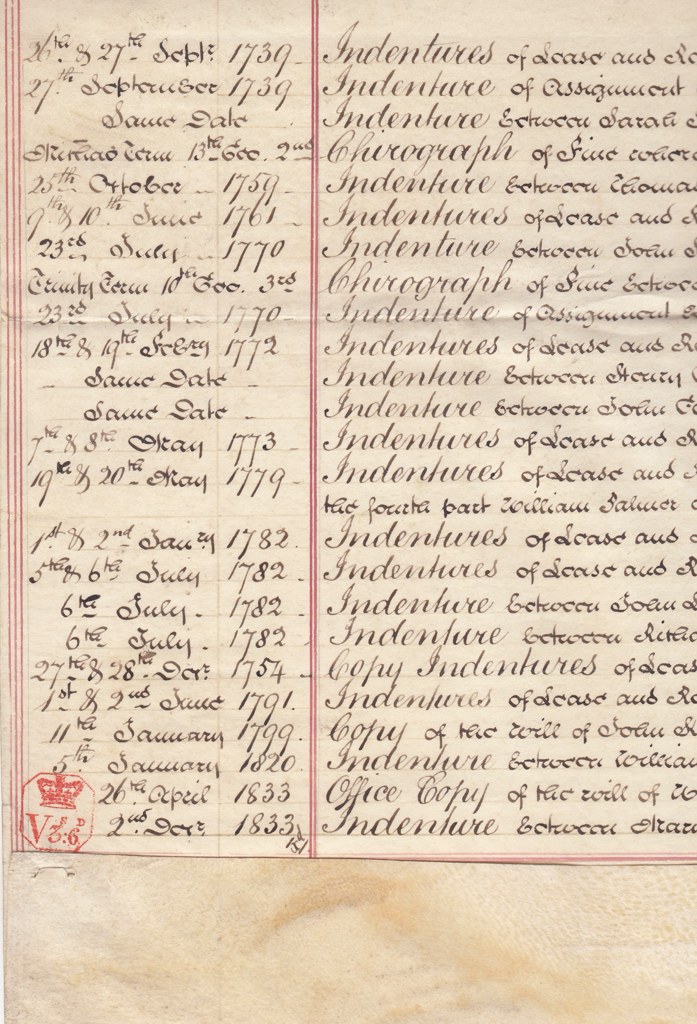 26th & 27th Septr. 1739 Indentures of Lease and Re
27th September 1739 Indenture of Assignment
Same Date Indenture between Sarah S
Michas Term 13th Geo. 2nd Chirograph of Fine where
25th October 1759 Indenture between Thomas
9th & 10th June 1761 Indentures of Lease and R
23rd July 1770 Indenture between John S
Trinity Term 10th Geo. 3rd Chirograph of Fine betwee
23rd July 1770 Indenture of Assignment b
18th & 19th Febry 1772 Indentures of Lease and Re
Same Date Indenture between Henry
Same Date Indenture between John Co
7th & 8th May 1773 Indentures of Lease and R
19th & 20th May 1779 Indentures of Lease and
the fourth part William Palmer
1st & 2nd Jany 1782. Indentures of Lease and
5th & 6th July 1782 Indentures of Lease and R
6th July 1782 Indenture between John
6th July 1782 Indenture between Richa
27th & 28th Decr. 1754 Copy Indentures of Leas
1st & 2nd June 1791. Indentures of Lease and Re
11th January 1799. Copy of the will of John R
5th January 1820 Indenture between William
26th April 1833 Office Copy of the will of W
2nd Decr. 1833 Indenture between Mary
V S D
3.6